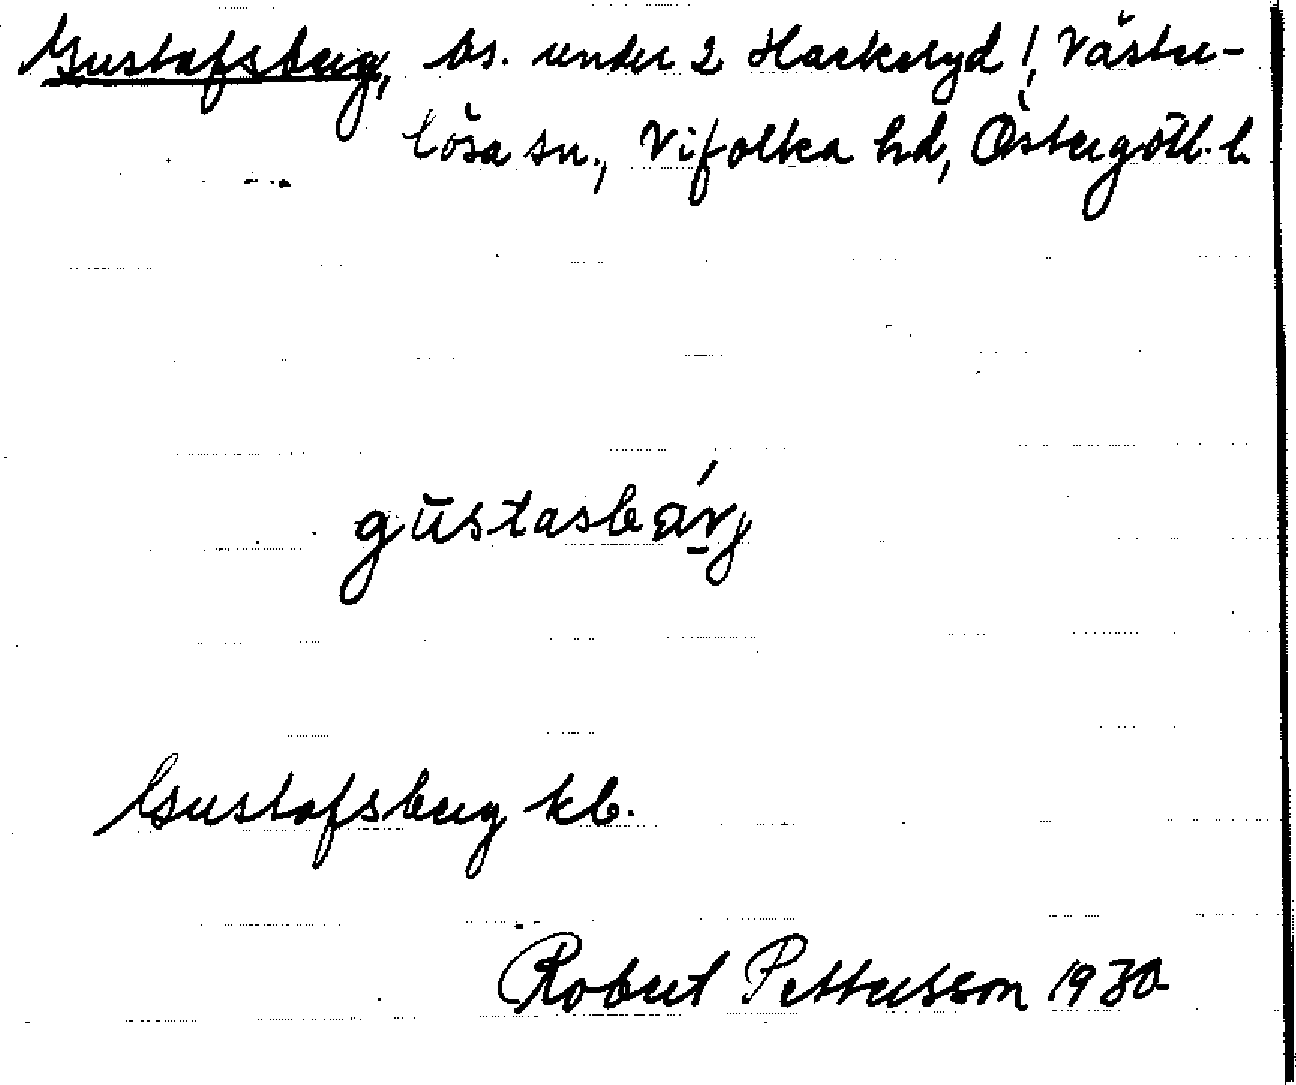 Gustafsberg, bs. under 2 Hackeryd!, Väster-
lösa sn., Vifolka hd, Östergötl. l.
gūstasbärj
Gustafsberg kb.
Robert Pettersson 1930